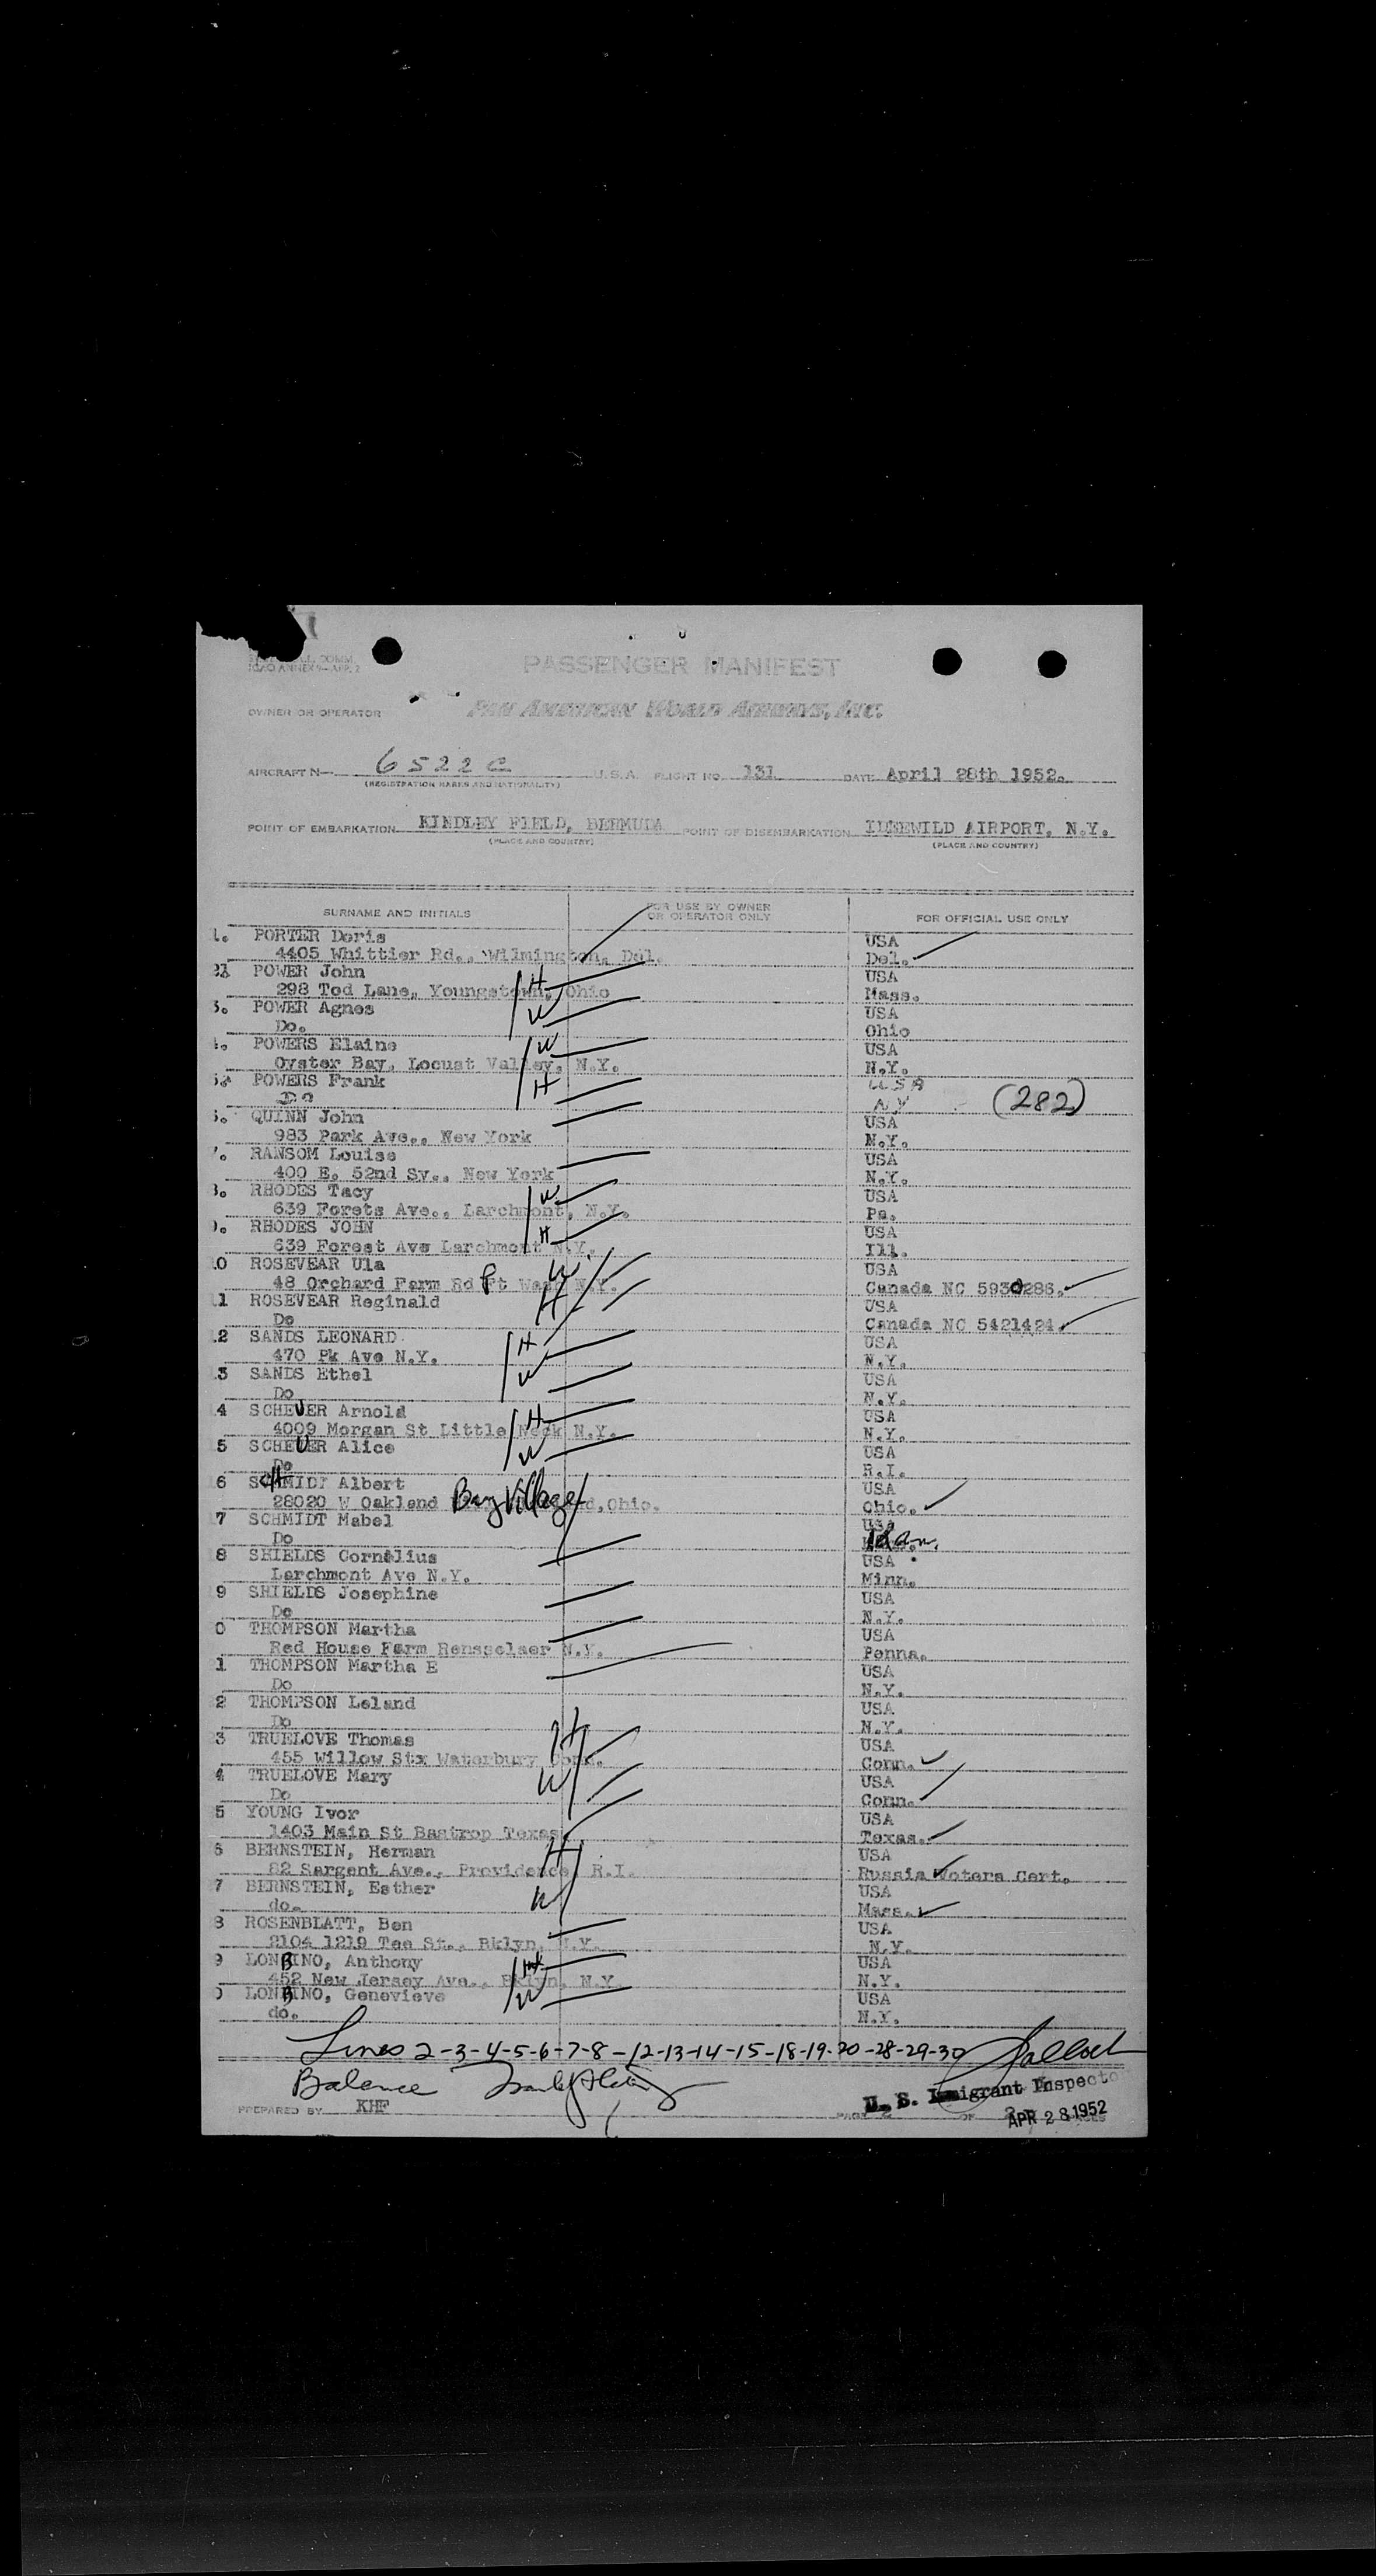 ICAO ANNEX 9—APP. 2
PASSENGER MANIFEST
OWNER OR OPERATOR PAN AMERICAN WORLD AIRWAYS, INC.
AIRCRAFT N— 6522C U.S.A. FLIGHT NO. 131 DATE April 28th 1952.
(REGISTRATION MARKS AND NATIONALITY)
POINT OF EMBARKATION KINDLEY FIELD, BERMUDA POINT OF DISEMBARKATION IDLEWILD AIRPORT, N.Y.
(PLACE AND COUNTRY) (PLACE AND COUNTRY)
SURNAME AND INITIALS FOR USE BY OWNER OR OPERATOR ONLY FOR OFFICIAL USE ONLY
1. PORTER Doris USA
4405 Whittier Rd., Wilmington, Del. Del.
2 POWER John H USA
298 Tod Lane, Youngstown, Ohio Mass.
3. POWER Agnes W USA
Do. Ohio
4. POWERS Elaine W USA
Oyster Bay, Locust Valley, N.Y. N.Y.
5. POWERS Frank H USA
Do NY (282)
6. QUINN John USA
983 Park Ave., New York N.Y.
7. RANSOM Louise USA
400 E. 52nd Sy., New York N.Y.
8. RHODES Tacy W USA
639 Forets Ave., Larchmont, N.Y. Pa.
9. RHODES JOHN H USA
639 Forest Ave Larchmont N.Y. Ill.
10 ROSEVEAR Ula W USA
48 Orchard Farm Rd Pt Wash N.Y. Canada NC 5930286.
11 ROSEVEAR Reginald H USA
Do Canada NC 5421424
12 SANDS LEONARD H USA
470 Pk Ave N.Y. N.Y.
13 SANDS Ethel W USA
Do N.Y.
14 SCHEUER Arnold H USA
4009 Morgan St Little Neck N.Y. N.Y.
15 SCHEUER Alice W USA
Do R.I.
16 SCHMIDT Albert USA
28020 W Oakland Bay Village, Ohio. Ohio.
17 SCHMIDT Mabel USA
Do Kan.
18 SHIELDS Cornelius USA
Larchmont Ave N.Y. Minn.
19 SHIELDS Josephine USA
Do N.Y.
20 THOMPSON Martha USA
Red House Farm Rensselaer N.Y. Penna.
21 THOMPSON Martha E USA
Do N.Y.
22 THOMPSON Leland USA
Do N.Y.
23 TRUELOVE Thomas H USA
455 Willow Stx Waterbury Conn. Conn.
24 TRUELOVE Mary W USA
Do Conn.
25 YOUNG Ivor USA
1403 Main St Bastrop Texas Texas.
26 BERNSTEIN, Herman H USA
82 Sargent Ave., Providence, R.I. Russia Voters Cert.
27 BERNSTEIN, Esther W USA
do. Mass.
28 ROSENBLATT, Ben USA
2104 1219 Tea St., Bklyn, N.Y. N.Y.
29 LONBINO, Anthony H USA
452 New Jersey Ave., Bklyn, N.Y. N.Y.
30 LONBINO, Genevieve W USA
do. N.Y.
Lines 2-3-4-5-6-7-8-12-13-14-15-18-19-20-28-29-30
Balance
U. S. Immigrant Inspector
PREPARED BY KHF PAGE 2 OF
APR 28 1952